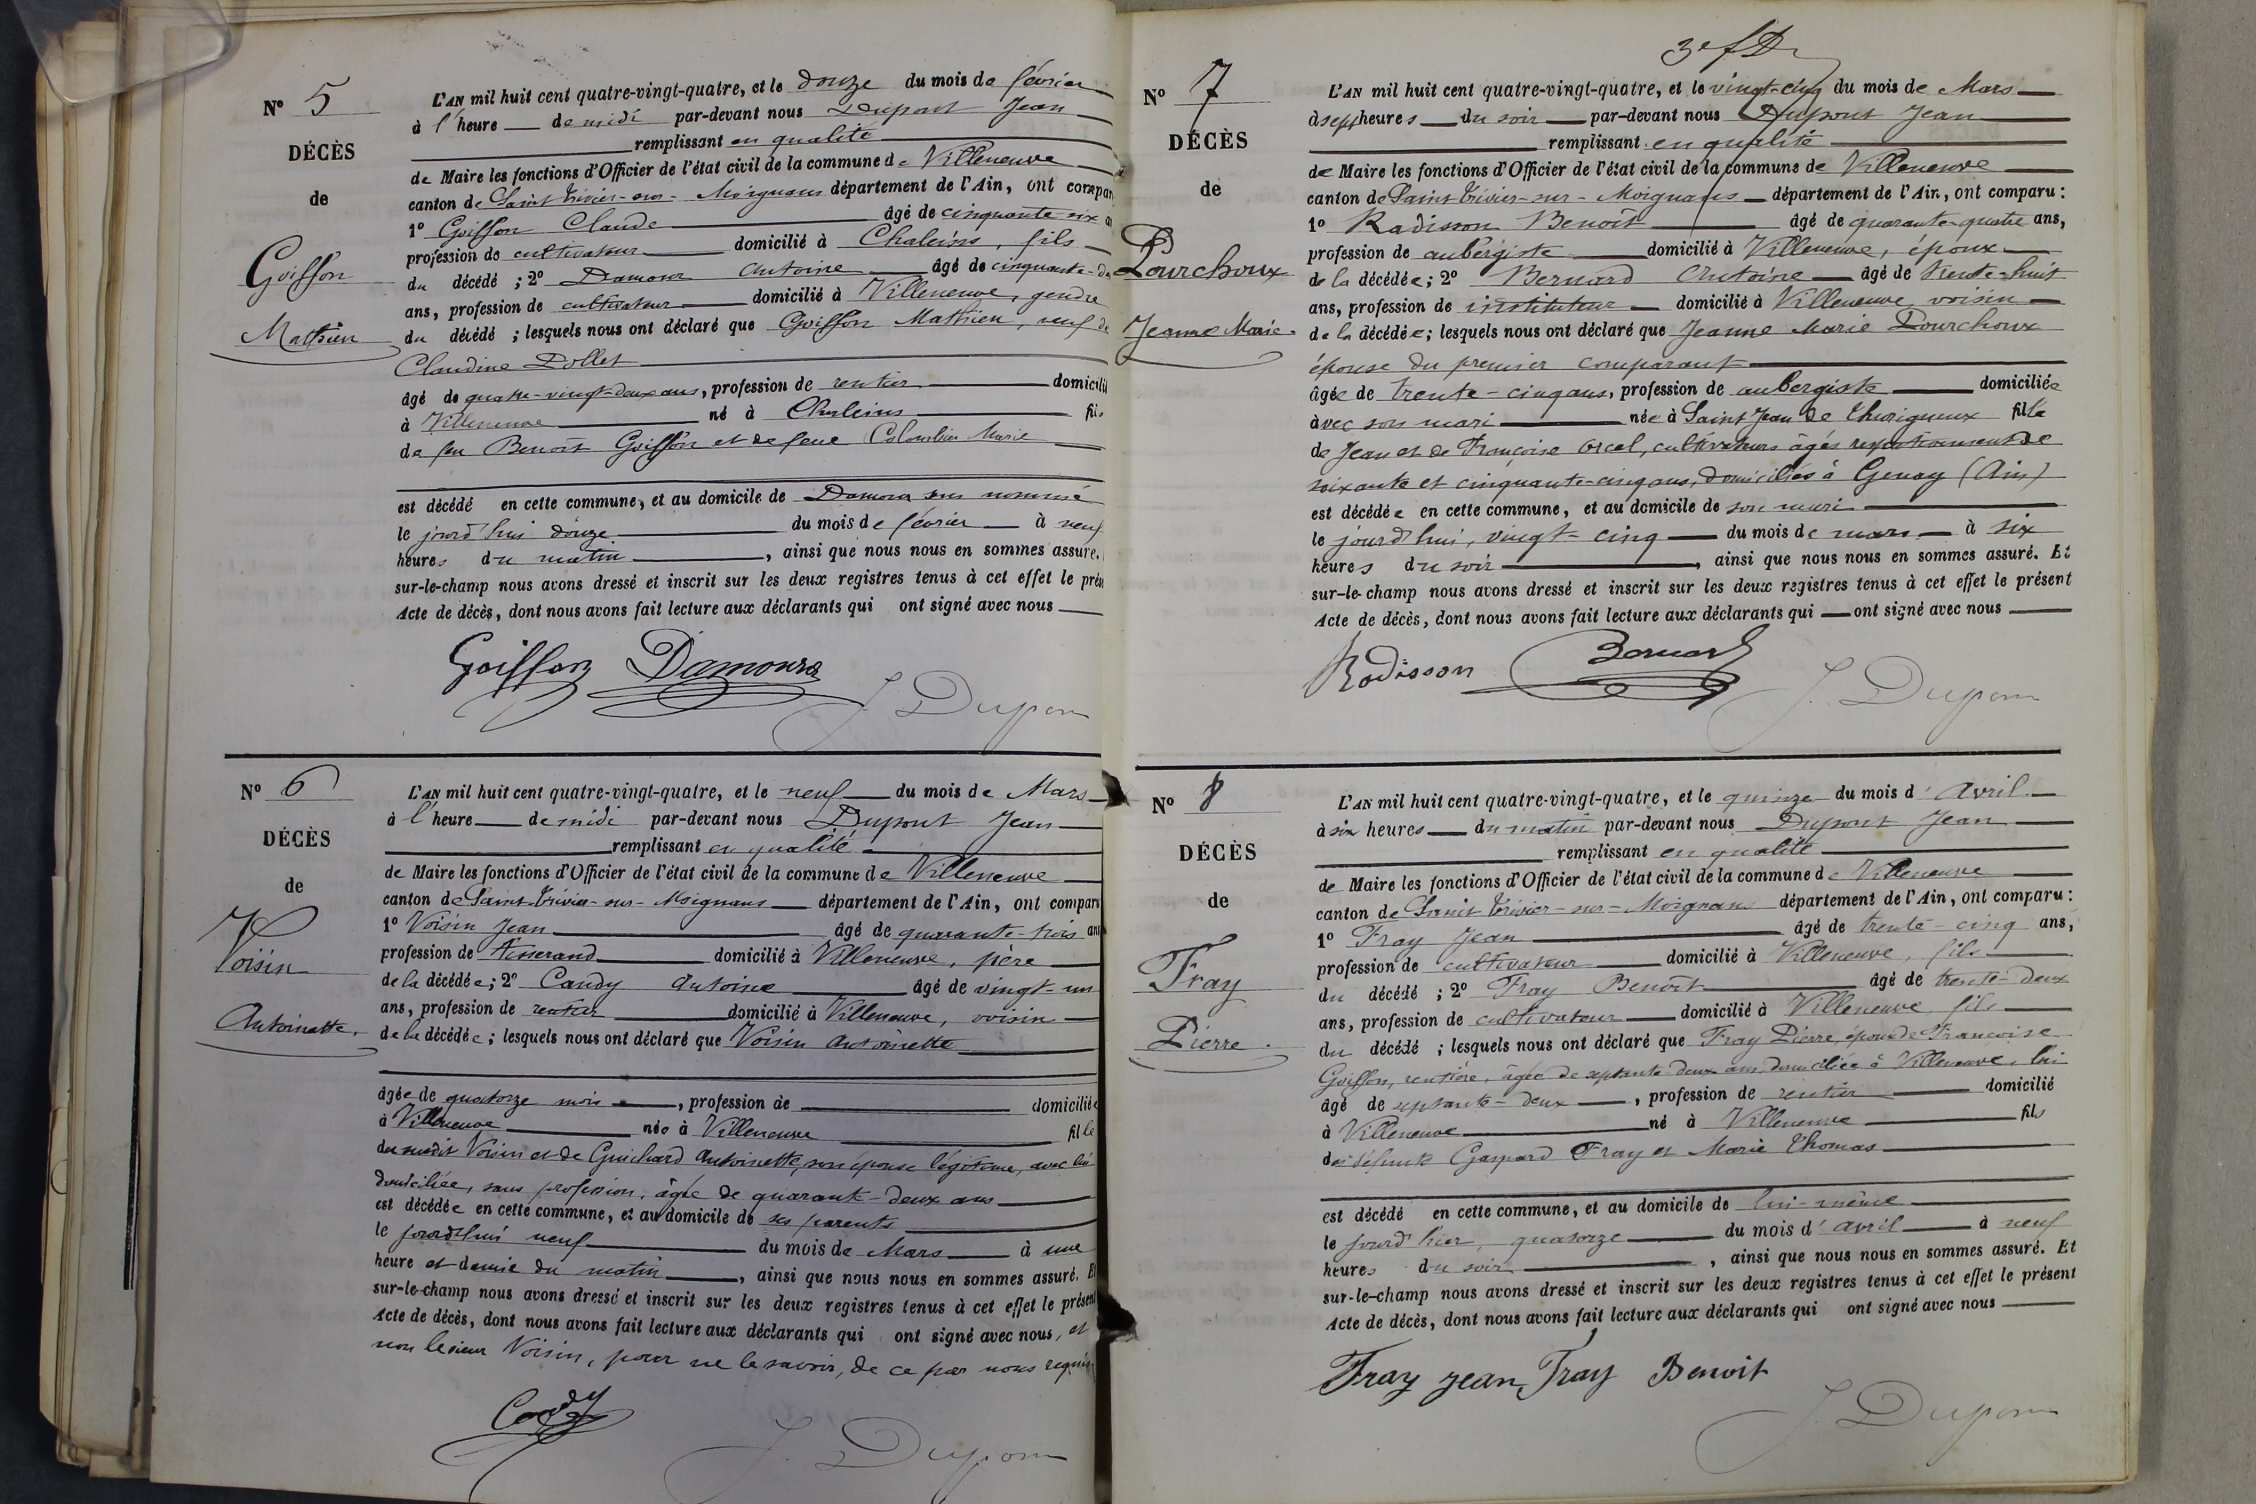 N° 5
DÉCÈS
de
Goiffon
Mathieu
L'AN mil huit cent quatre-vingt-quatre, et le douze du mois de février
à l'heure de midi par-devant nous Dupont Jean
remplissant en qualité
de Maire les fonctions d'Officier de l'état civil de la commune de Villeneuve
canton de Saint Trivier-sur-Moignans département de l'Ain, ont compar
1° Goiffon Claude âgé de cinquante six
profession de cultivateur domicilié à Chaleins, fils
du décédé ; 2° Damour Antoine âgé de cinquante-
ans, profession de cultivateur domicilié à Villeneuve, gendre
du décédé ; lesquels nous ont déclaré que Goiffon Mathieu, veuf de
Claudine Dollet
âgé de quatre-vingt-deux ans, profession de rentier domicilié
à Villeneuve né à Chaleins fils
de feu Benoît Goiffon et de feue Colombier Marie
est décédé en cette commune, et au domicile de Damour sus nommé
le jourd'hui douze du mois de février à neuf
heures du matin, ainsi que nous nous en sommes assuré.
sur-le-champ nous avons dressé et inscrit sur les deux registres tenus à cet effet le prés
Acte de décès, dont nous avons fait lecture aux déclarants qui ont signé avec nous
Goiffon Damour
J. Dupont
N° 6
DÉCÈS
de
Voisin
Antoinette.
L'AN mil huit cent quatre-vingt-quatre, et le neuf du mois de Mars
à l'heure de midi par-devant nous Dupont Jean
remplissant en qualité
de Maire les fonctions d'Officier de l'état civil de la commune de Villeneuve
canton de Saint-Trivier-sur-Moignans département de l'Ain, ont comparu
1° Voisin Jean âgé de quarante-trois ans
profession de tisserand domicilié à Villeneuve, père
de la décédée; 2° Candy Antoine âgé de vingt-un
ans, profession de rentier domicilié à Villeneuve, voisin
de la décédée; lesquels nous ont déclaré que Voisin Antoinette
âgée de quatorze mois, profession de domiciliée
à Villeneuve née à Villeneuve fille
du susdit Voisin et de Guichard Antoinette, son épouse légitime, avec lui
domiciliée, sans profession, âgée de quarante-deux ans
est décédée en cette commune, et au domicile de ses parents
le jourd'hui neuf du mois de Mars à une
heure et demie du matin, ainsi que nous nous en sommes assuré. Et
sur-le-champ nous avons dressé et inscrit sur les deux registres tenus à cet effet le présent
Acte de décès, dont nous avons fait lecture aux déclarants qui ont signé avec nous, et
non le sieur Voisin, pour ne le savoir, de ce par nous requis
Candy
J. Dupont
3e f D
N° 7
DÉCÈS
de
Pourchoux
Jeanne Marie
L'AN mil huit cent quatre-vingt-quatre, et le vingt-cinq du mois de Mars
à sept heures du soir par-devant nous Dupont Jean
remplissant en qualité
de Maire les fonctions d'Officier de l'état civil de la commune de Villeneuve
canton de Saint Trivier-sur-Moignans département de l'Ain, ont comparu :
1° Radisson Benoît âgé de quarante-quatre ans,
profession de aubergiste domicilié à Villeneuve, époux
de la décédée; 2° Bernard Antoine âgé de trente-huit
ans, profession de instituteur domicilié à Villeneuve voisin
de la décédée; lesquels nous ont déclaré que Jeanne Marie Pourchoux
épouse du premier comparant
âgée de trente-cinq ans, profession de aubergiste domiciliée
à avec son mari née à Saint Jean de Thurigneux fille
de Jean et de Françoise Orcel, cultivateurs âgés respectivement de
soixante et cinquante-cinq ans, domiciliés à Genay (Ain)
est décédée en cette commune, et au domicile de son mari
le jourd'hui, vingt-cinq du mois de mars à six
heures du soir, ainsi que nous nous en sommes assuré. Et
sur-le-champ nous avons dressé et inscrit sur les deux registres tenus à cet effet le présent
Acte de décès, dont nous avons fait lecture aux déclarants qui ont signé avec nous
Radisson Bernard
J. Dupont
N° 8
DÉCÈS
de
Fray
Pierre.
L'AN mil huit cent quatre-vingt-quatre, et le quinze du mois d'avril
à six heures du matin par-devant nous Dupont Jean
remplissant en qualité
de Maire les fonctions d'Officier de l'état civil de la commune de Villeneuve
canton de Saint Trivier-sur-Moignans département de l'Ain, ont comparu :
1° Fray Jean âgé de trente-cinq ans,
profession de cultivateur domicilié à Villeneuve, fils
du décédé ; 2° Fray Benoît âgé de trente-deux
ans, profession de cultivateur domicilié à Villeneuve fils
du décédé ; lesquels nous ont déclaré que Fray Pierre, époux de Françoise
Goiffon, rentière, âgée de septante deux ans domiciliée à Villeneuve, lui
âgé de septante-deux, profession de rentier domicilié
à Villeneuve né à Villeneuve fils
des défunts Gaspard Fray et Marie Thomas
est décédé en cette commune, et au domicile de lui-même
le jourd'hier, quatorze du mois d'avril à neuf
heures du soir, ainsi que nous nous en sommes assuré. Et
sur-le-champ nous avons dressé et inscrit sur les deux registres tenus à cet effet le présent
Acte de décès, dont nous avons fait lecture aux déclarants qui ont signé avec nous
Fray Jean Fray Benoit
J. Dupont